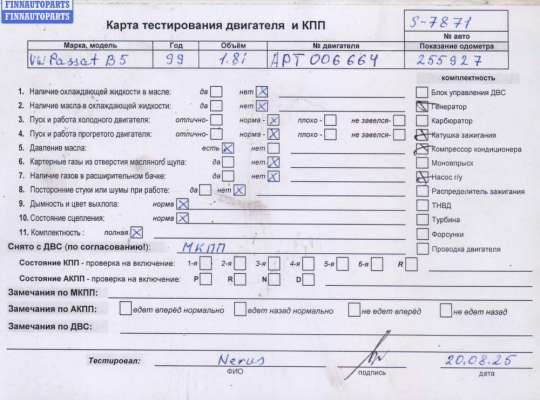 FINNAUTOPARTS
FINNAUTOPARTS
Карта тестирования двигателя и КПП
S-7871
№ авто
Марка, модель Год Объём № двигателя Показание одометра
VW Passat B5 99 1.8i APT 006664 255927
комплектность
1. Наличие охлаждающей жидкости в масле: да нет
Блок управления ДВС
2. Наличие масла в охлаждающей жидкости: да нет
Генератор
3. Пуск и работа холодного двигателя: отлично- норма - плохо - не завелся-
Карбюратор
4. Пуск и работа прогретого двигателя: отлично- норма - плохо - не завелся-
Катушка зажигания
5. Давление масла: есть нет
Компрессор кондиционера
6. Картерные газы из отверстия масляного щупа: да нет
Моновпрыск
7. Наличие газов в расширительном бачке: да нет
Насос г/у
8. Посторонние стуки или шумы при работе: да нет
Распределитель зажигания
9. Дымность и цвет выхлопа: норма
ТНВД
10. Состояние сцепления: норма
Турбина
11. Комплектность : полная
Форсунки
Снято с ДВС (по согласованию!): МКПП
Проводка двигателя
Состояние КПП - проверка на включение: 1-я 2-я 3-я 4-я 5-я 6-я R
Состояние АКПП - проверка на включение: P R N D
Замечания по МКПП:
Замечания по АКПП: едет вперёд нормально едет назад нормально не едет вперёд не едет назад
Замечания по ДВС:
Тестировал: Nerus 20.08.25
ФИО подпись дата